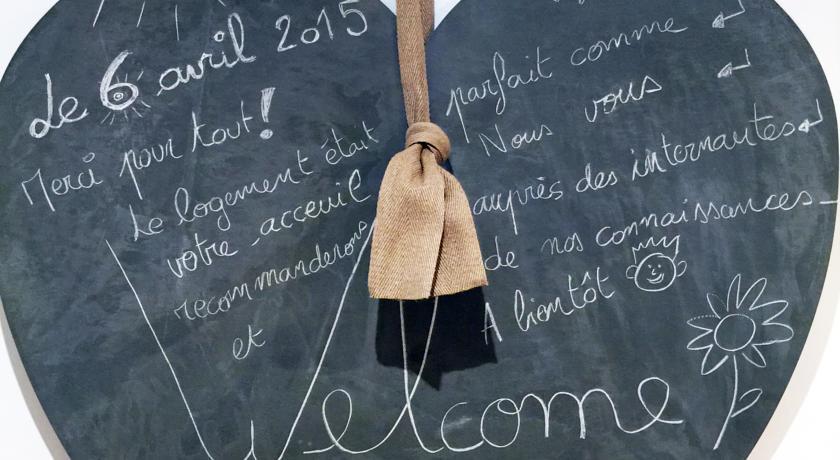 Le 6 avril 2015
Merci pour tout !
Le logement était parfait comme
votre accueil Nous vous
recommanderons auprès des internautes
et de nos connaissances
A bientôt
Welcome